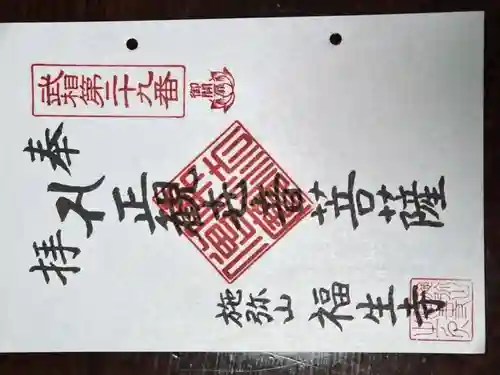 武相第二十九番
御開扉
奉拝
礼正観世音菩薩
施弥山 福生寺